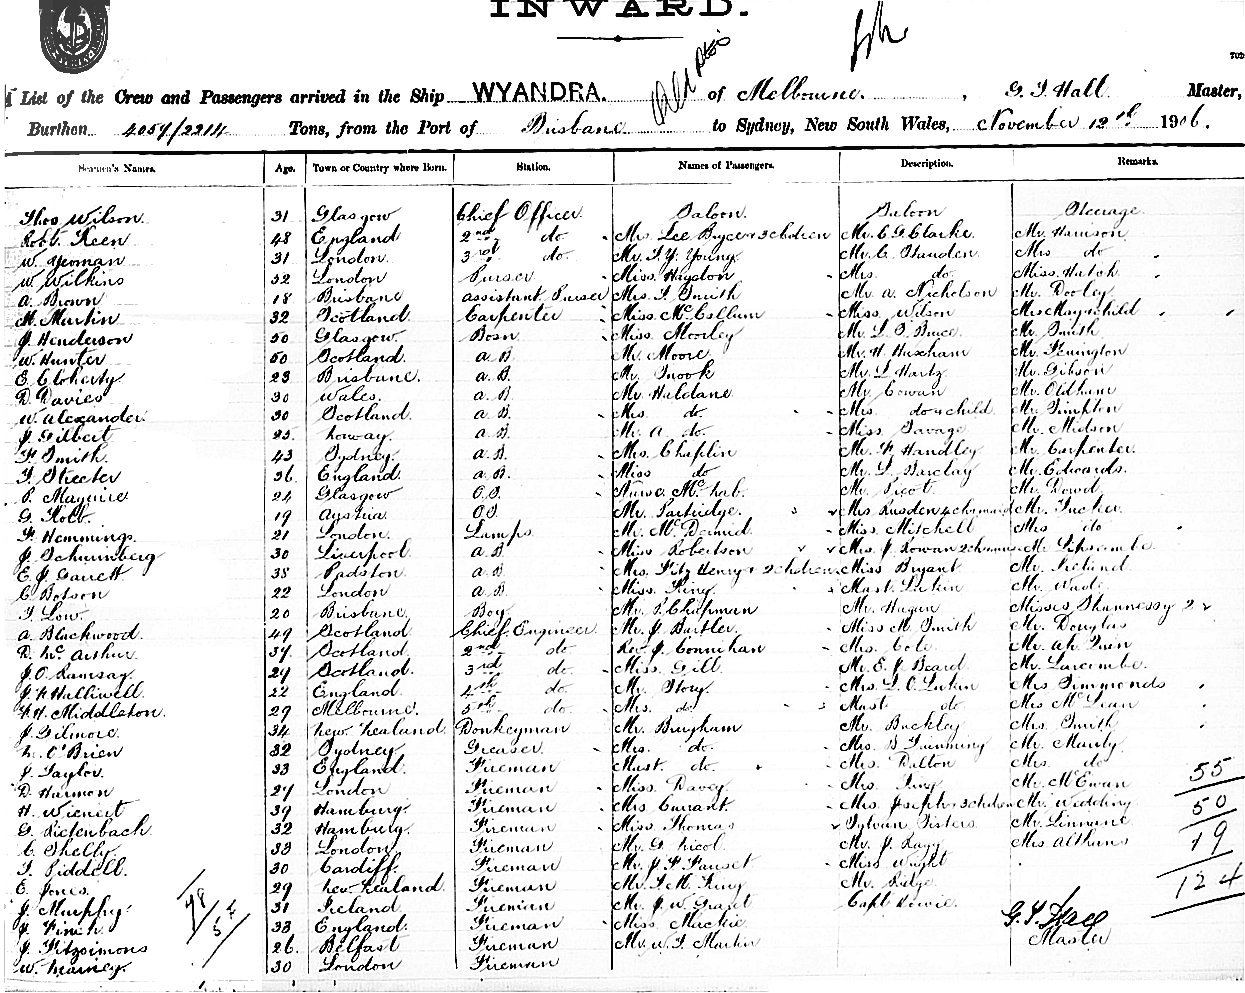 INWARD.
List of the Crew and Passengers arrived in the Ship WYANDRA. of Melbourne. , G. T. Hall Master,
Burthen 4057/2214 Tons, from the Port of Brisbane to Sydney, New South Wales, November 12th 1906.
Seamen's Names. Age. Town or Country where Born. Station. Names of Passengers. Description. Remarks.
Thos Wilson. 31 Glasgow Chief Officer Saloon. Saloon Steerage
Robt. Keen 48 England 2nd do Mrs. Lee Bryce & 3 children Mr. C. G. Clarke Mr. Harrison
W. Yeoman 31 London. 3rd do. Mr. T. Y. Young Mr. C. Mrs do
W. Wilkins 32 London Purser Miss. Haydon Mrs. do. Miss. Hatch
A. Brown 18 Brisbane assistant Purser Mrs. T. Smith Mr. A. Nicholson Mr. Dooley
M. Martin 32 Scotland Carpenter Miss. McCallum Miss. Wilson Mrs May & child
J. Henderson 50 Glasgow Bosn Miss. Moorley Mr. L. O. Bruce. Mr. Smith
W. Hunter 50 Scotland. a. B Mr. Moore Mr. H. Huxham Mr.
E. Cloherty 23 Brisbane. a. B. Mr. Snook Mr. L. Hartz Mr. Gibson
D. Davies 30 Wales. a. B. Mr. Haldane Mr. Cowan Mr. Oldham
W. Alexander 30 Scotland a. B. Mrs. do Mrs. do & child. Mr. Simpson
J. Gilbert 25. Norway. a. B. Mr. A do. Miss. Savage Mr. Midson
F. Smith. 43 Sydney. a. B. Mrs. Chaplin Mr. F. Handley Mr. Carpenter.
T. Skeeter 36 England. a. B. Miss do Mr. L. Barclay Mr. Edwards.
P. Maguire 24 Glasgow O.S. Nurse McNab. Mr. Picot. Mr. Dowd
G. Kolb. 19 Austria O.S. Mr. Partridge. Mrs Rusden & Mr. Tucker
F. Hemmings 21 London. Lamps. Mr. McDermid Miss. Mitchell Mrs do
J. Schurmberg 30 Liverpool. a. B Miss Robertson Mrs. J. Rowan 2 Mr. Lipscombe.
E. J. Garrett 38 Padston a. B. Mrs. Fitz Henry & 2 children Miss Bryant Mr. Ireland
C. Botson 22 London a. B. Miss. King. Mast. Lukin Mr. Wade
T. Low. 20 Brisbane Boy Mr. P. Chapman Mr. Hagan Misses Shannessy 2
A. Blackwood. 49 Scotland Chief Engineer Mr. J. Butler. Miss M. Smith Mr. Douglas
D. McArthur. 37 Scotland. 2nd do Rev. J. Connihan Mrs. Cole. Mr. Ah
J. O. Ramsay 29 Scotland. 3rd do. Miss. Gill Mr. E. J. Beard. Mr. Larcombe.
J. F. Halliwell. 22 England 4th do Mr. Story. Mrs. L. O. Lukin Mrs. Simmonds
F. H. Middleton. 29 Melbourne. 5th do Mrs. do Mast do Mrs McLean
J. Gilmore. 34 New Zealand. Donkeyman Mr. Brigham Mr. Buckley Mrs. Smith
M. O'Brien 32 Sydney Greaser Mrs. do. Mrs. B. Mr. Manly.
J. Taylor. 33 England. Fireman Mast. do. Mrs. Dalton Mrs. do 55
D. Harmon 27 London Fireman Miss. Davey Mrs. King Mr. McEwan
H. Wienert 39 Hamburg. Fireman Mrs Currant Mrs. Joseph & 3 children Mr. Wedding 50
G. Riefenbach 32 Hamburg. Fireman Miss. Thomas Sylvan Sisters. Mr. Linnane
C. Shelly. 33 London. Fireman Mr. G. Nicol. Mr. J. Mrs Althans 19
T. Riddell. 30 Cardiff. Fireman Mr. J. F. Fauset Miss Wright
E. Jones. 29 New Zealand. Fireman Mr. T. M. King Mr. 124
J. Murphy. 31 Ireland Fireman Mr. J. W. Grant Capt. Howie.
J. Finch. 33 England. Fireman Miss. Mackie G. T. Hall
J. Fitzsimons 26. Belfast Fireman Mr. W. T. Martin Master
W. Kearney. 30 London Fireman